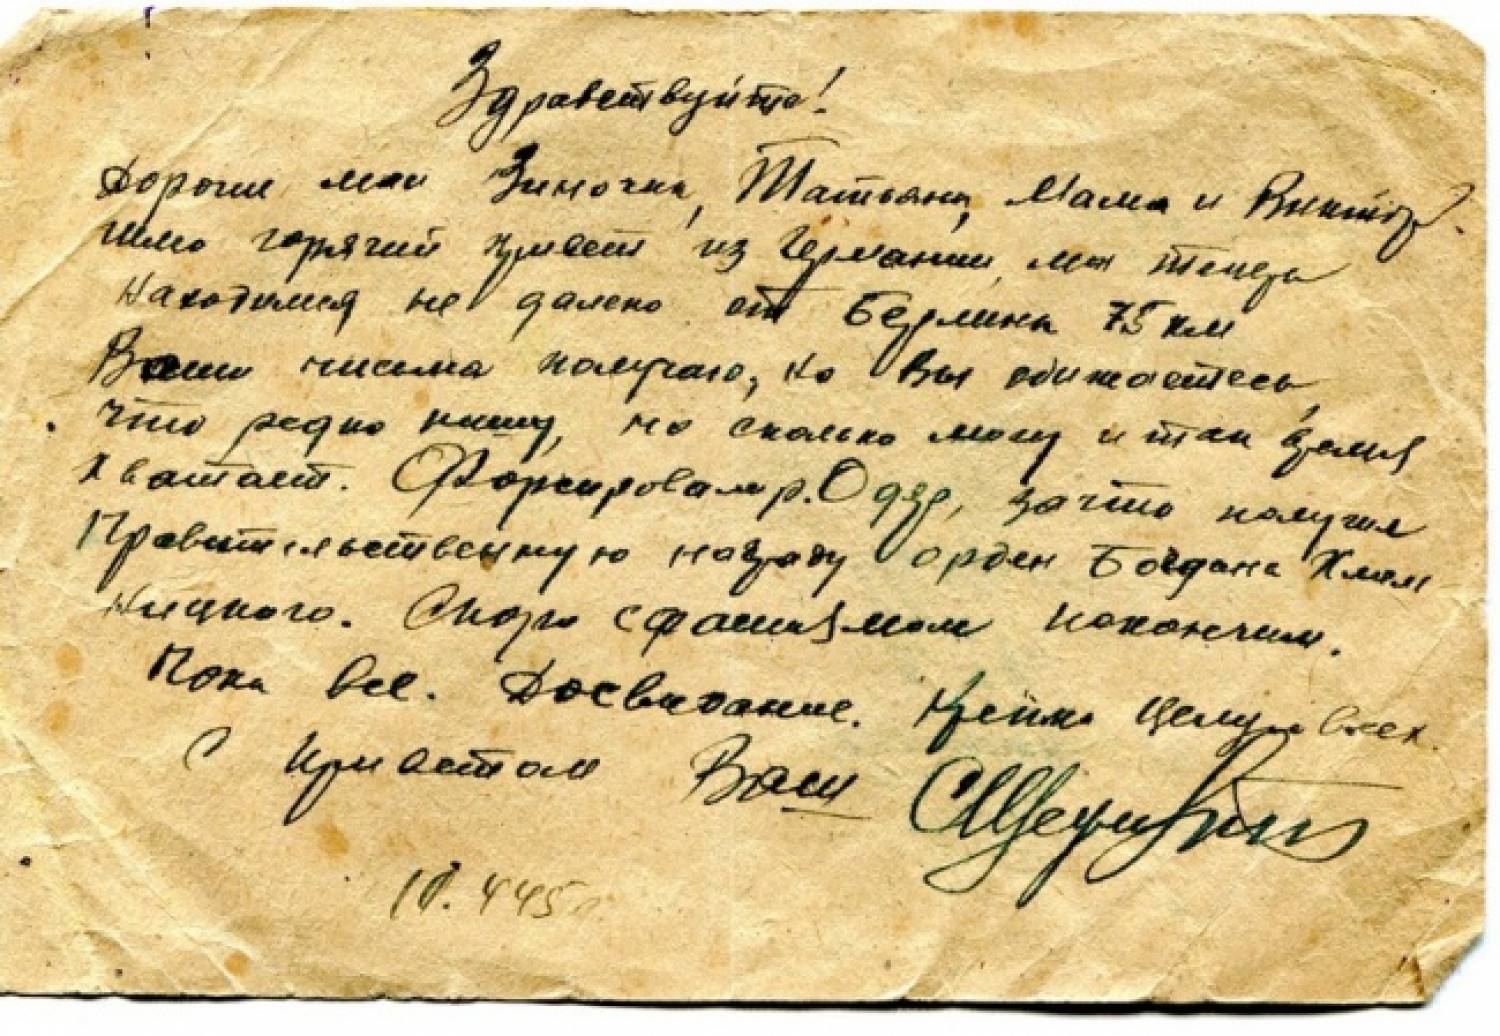 Здравствуйте!
Дорогие мои Зиночка, Татьяна, Мама и Виктор.
шлю горячий привет из Германии, мы теперь
находимся не далеко от Берлина 75 км
Ваши письма получаю, но Вы обижаетесь,
что редко пишу, но сколько могу и так время
хватает. Форсировали р. Одер, за что получил
Правительственную награду орден Богдана Хмель
ницкого. Скоро с фашизмом покончим.
Пока все. Досвидание. Крепко целую всех.
С приветом Ваш
445